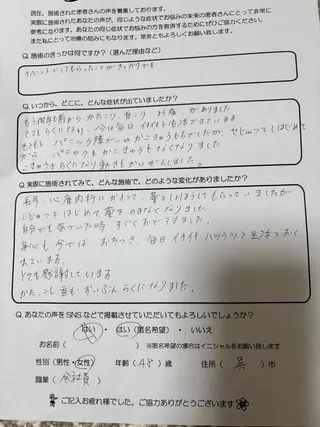 現在、施術された患者さんの声を募集しております。
実際に施術されたあなたの声が、同じような症状でお悩みの未来の患者さんにとって非常に
参考になります。あなたの声でお悩みの方を救済するためにぜひご協力ください。
また私にとって治療の励みにもなります。是非ともよろしくお願い致します。
Q. 施術のきっかけは何ですか？（選んだ理由など）
イベントでしてもらったことがきっかけです
Q. いつから、どこに、どんな症状が出ていましたか？
もう何年も前から かたこり、首こり、よう痛、がありました
とてもらくになり、今は毎日 イキイキ生活できています
もともと パニック障がいや かこきゅうもちでしたが、せじゅつをしはじめて
から、パニックも かこきゅうもなくなりました
こきゅうもらくになり動きもかいぜんしました。
Q. 実際に施術されてみて、どんな施術で、どのような変化がありましたか？
長年、心療内科にかよって、薬をしょほうしてもらっていましたが
しじゅつをはじめて薬をのまなくなりました
自分でも驚いていた時 すごくおどろきました
身心も今では おちつき、毎日 イキイキ ハツラツと生活でおく
れています。
とても感謝しています
かた、こし、首も ずいぶん らくになりました。
Q. あなたの声をSNSなどで掲載させていただいてもよろしいでしょうか？
はい ・ はい(匿名希望) ・ いいえ
お名前（ ）※匿名希望の場合はイニシャルをお願い致します
性別（男性・女性） 年齢（48）歳 住所（呉）市
職業（会社員）
ご記入お疲れ様でした。ご協力ありがとうございます